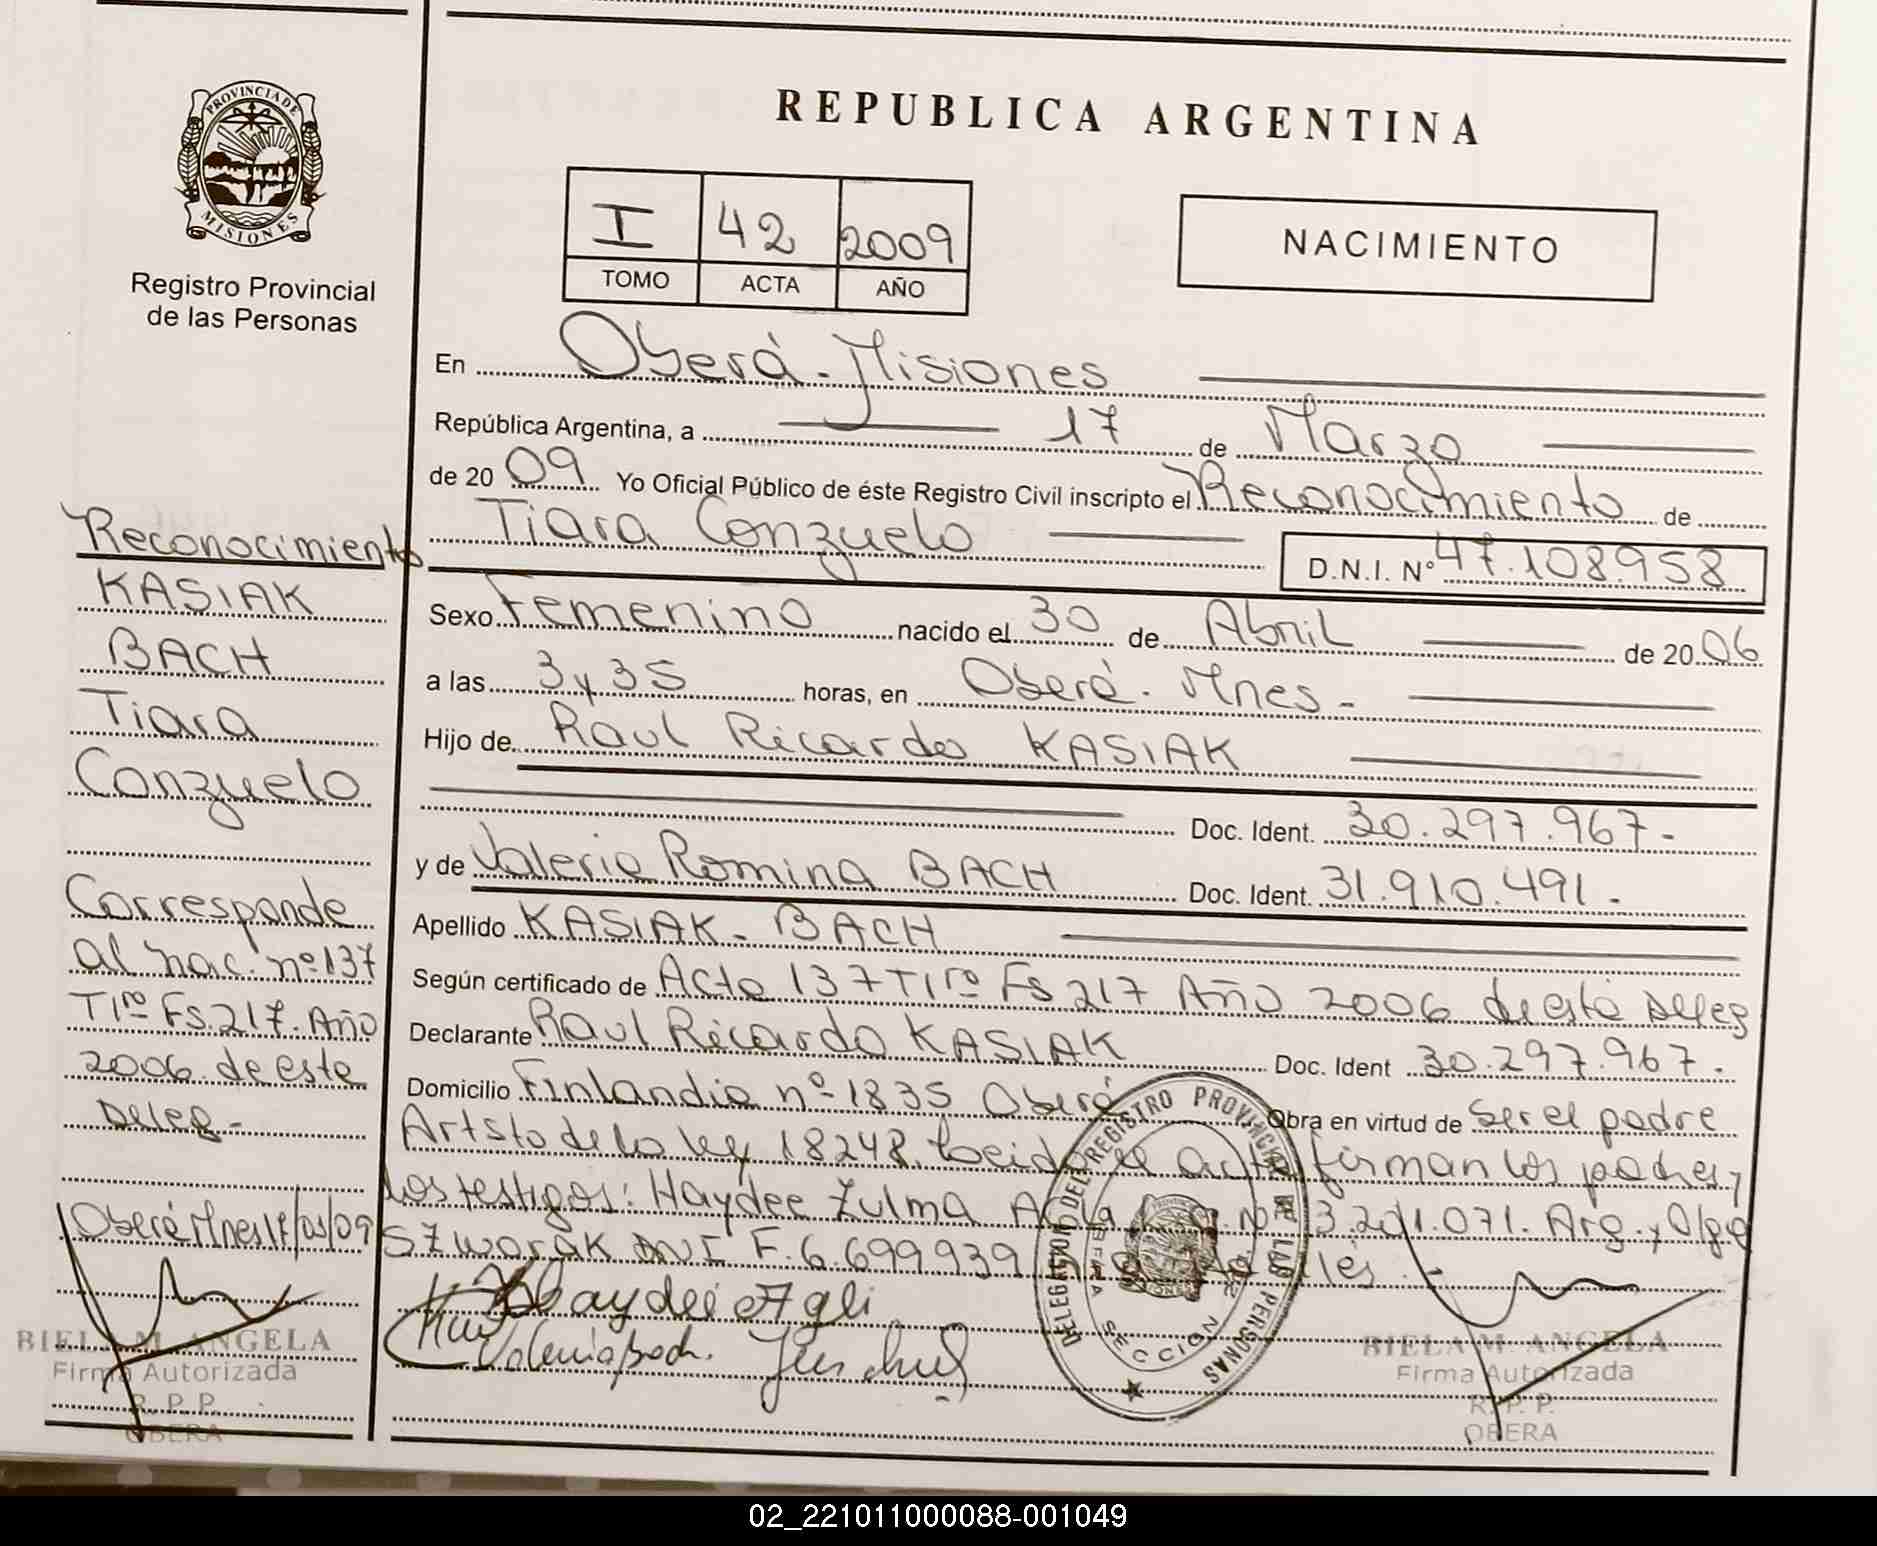 PROVINCIA DE
MISIONES
Registro Provincial
de las Personas
REPUBLICA ARGENTINA
I 42 2009
TOMO ACTA AÑO
NACIMIENTO
En Oberá - Misiones
República Argentina, a 17 de Marzo
de 20 09 Yo Oficial Público de éste Registro Civil inscripto el Reconocimiento de
Tiara Conzuelo D.N.I. Nº 47.108.958
Sexo Femenino nacido el 30 de Abril de 20 06
a las 3 y 35 horas, en Oberá - Mnes -
Hijo de Raul Ricardo KASIAK
Doc. Ident. 30.297.967-
y de Valeria Romina BACH Doc. Ident. 31.910.491-
Apellido KASIAK - BACH
Según certificado de Acta 137 T1ro Fs 217 Año 2006 de esta Deleg
Declarante Raul Ricardo KASIAK Doc. Ident 30.297.967.
Domicilio Finlandia nº 1835 Oberá Obra en virtud de Ser el padre
Art 5to de la ley 18248. Leida el acta firman los padres y
los testigos: Haydee Zulma 3.201.071. Arg. y Olga
SZWORAK DNI F. 6.699.939
Haydeé Agli
Valeria Bach.
DELEGACION DEL REGISTRO PROVINCIAL DE LAS PERSONAS
SECCION
BIELA M. ANGELA
Firma Autorizada
R. P. P.
OBERA
Reconocimiento
KASIAK
BACH
Tiara
Conzuelo
Corresponde
al nac. nº 137
T1ro Fs. 217. Año
2006 de este
Deleg -
Oberá Mnes 17/03/09
BIELA M. ANGELA
Firma Autorizada
R. P. P.
OBERA
02_221011000088-001049